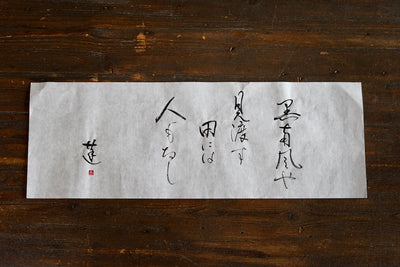 黒南風や
見渡す
田には
人もなし
蓮